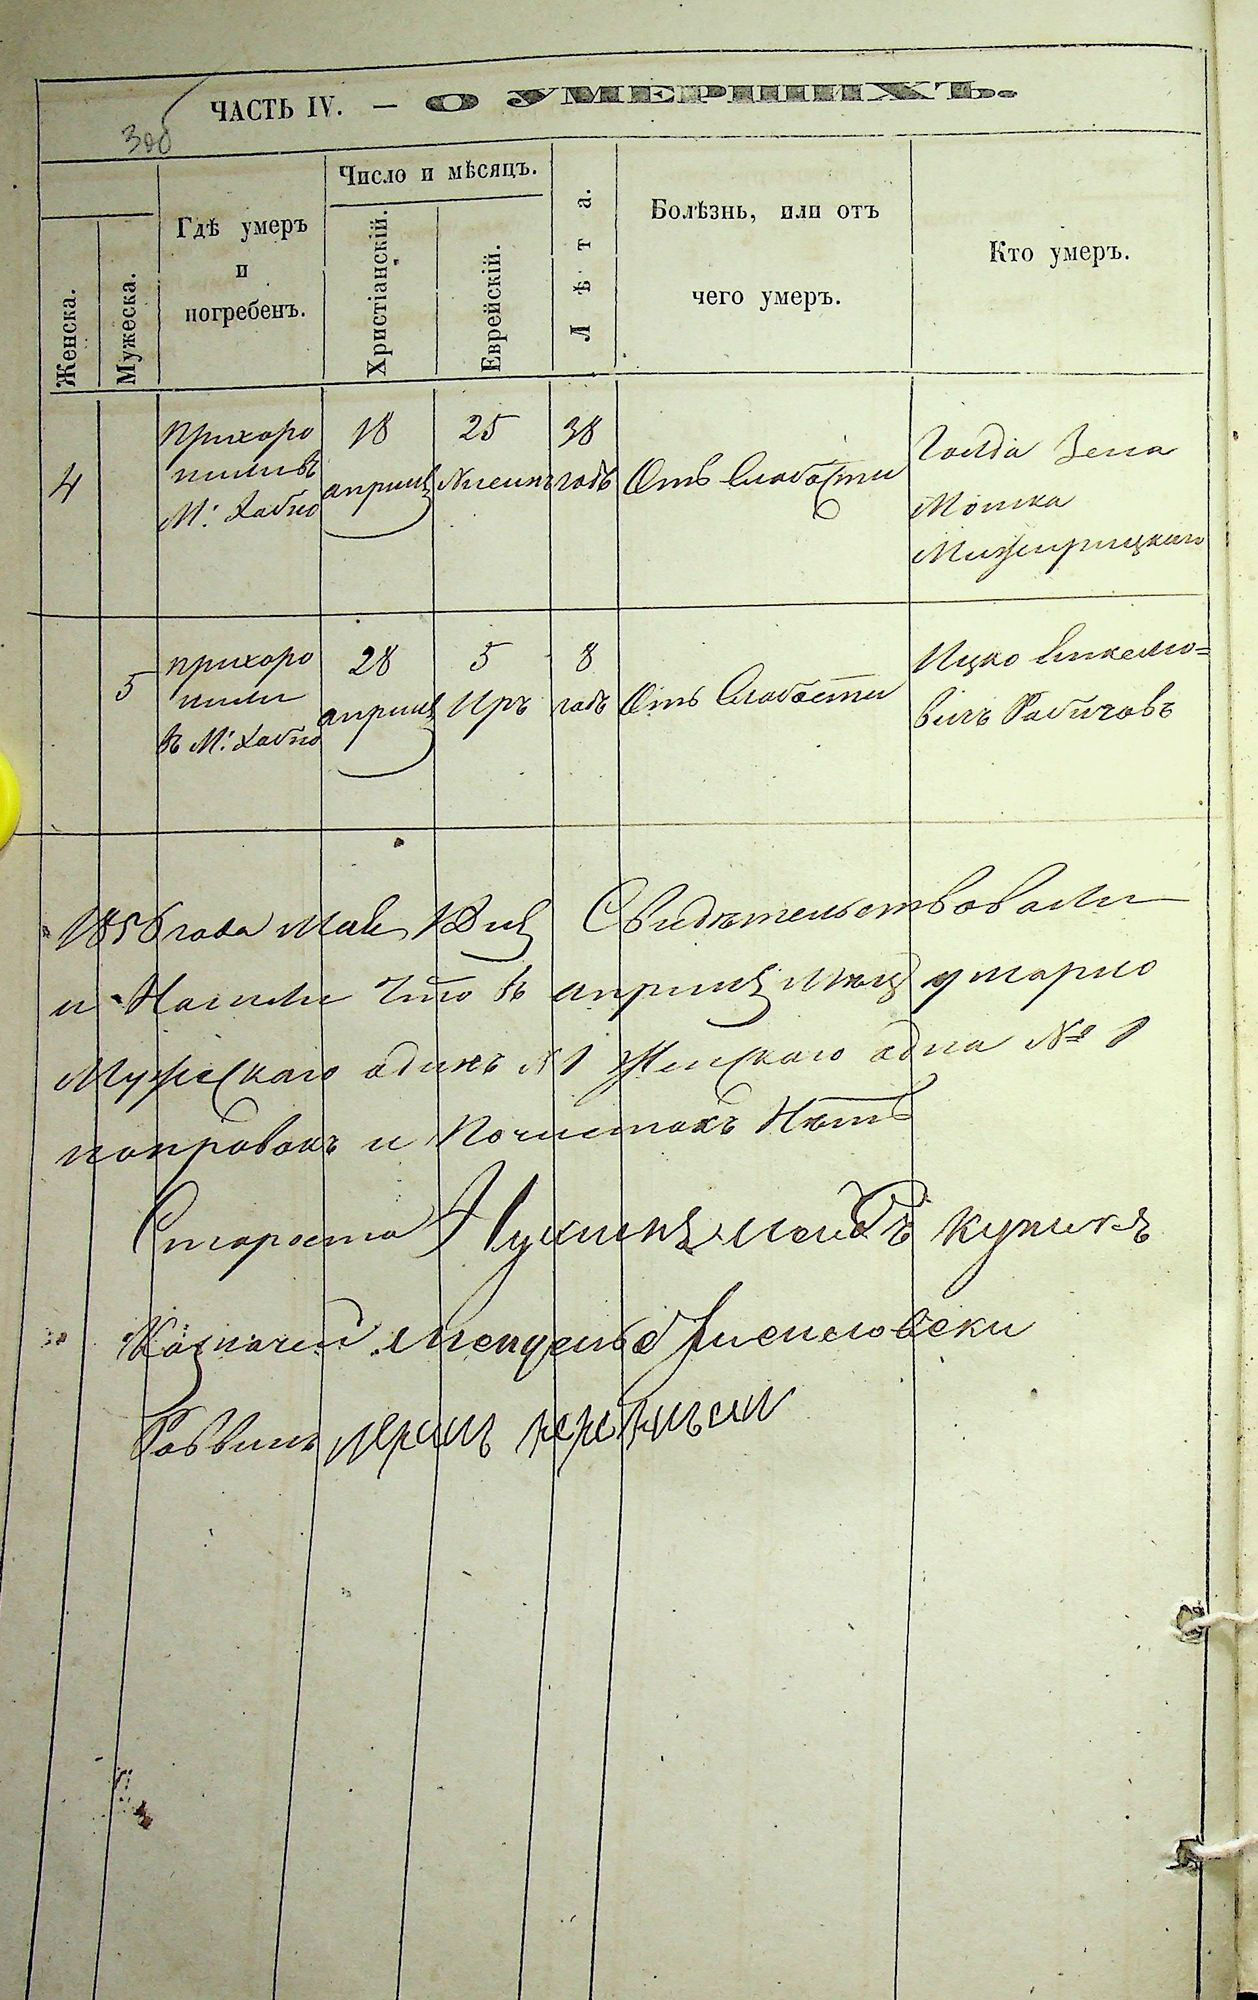 ЧАСТЬ IV. — О УМЕРШИХЪ.
300
Женска.
Мужеска.
Гдѣ умеръ
и
погребенъ.
Число и мѣсяцъ.
Христіанскій.
Еврейскій.
Лѣта.
Болѣзнь, или отъ
чего умеръ.
Кто умеръ.
4
прихоро
нили въ
М: Хабно
18
априля
25
Нисенъ
38
годъ
Отъ Слабости
Голда Зена
Мошка
5
прихоро
нили
в М: Хабно
28
априля
5
Иръ
8
годъ
Отъ Слабости
Ицко
вичъ Рабичовъ
1856 года Мая 1 Дня Свидѣтельствовали
и Нашли что в априля мѣця умарло
Мужескаго одинъ №1 Женскаго одна № 1
поправокъ и Почистокъ Нѣтъ
Староста
Казначей Мендель
Раввинъ